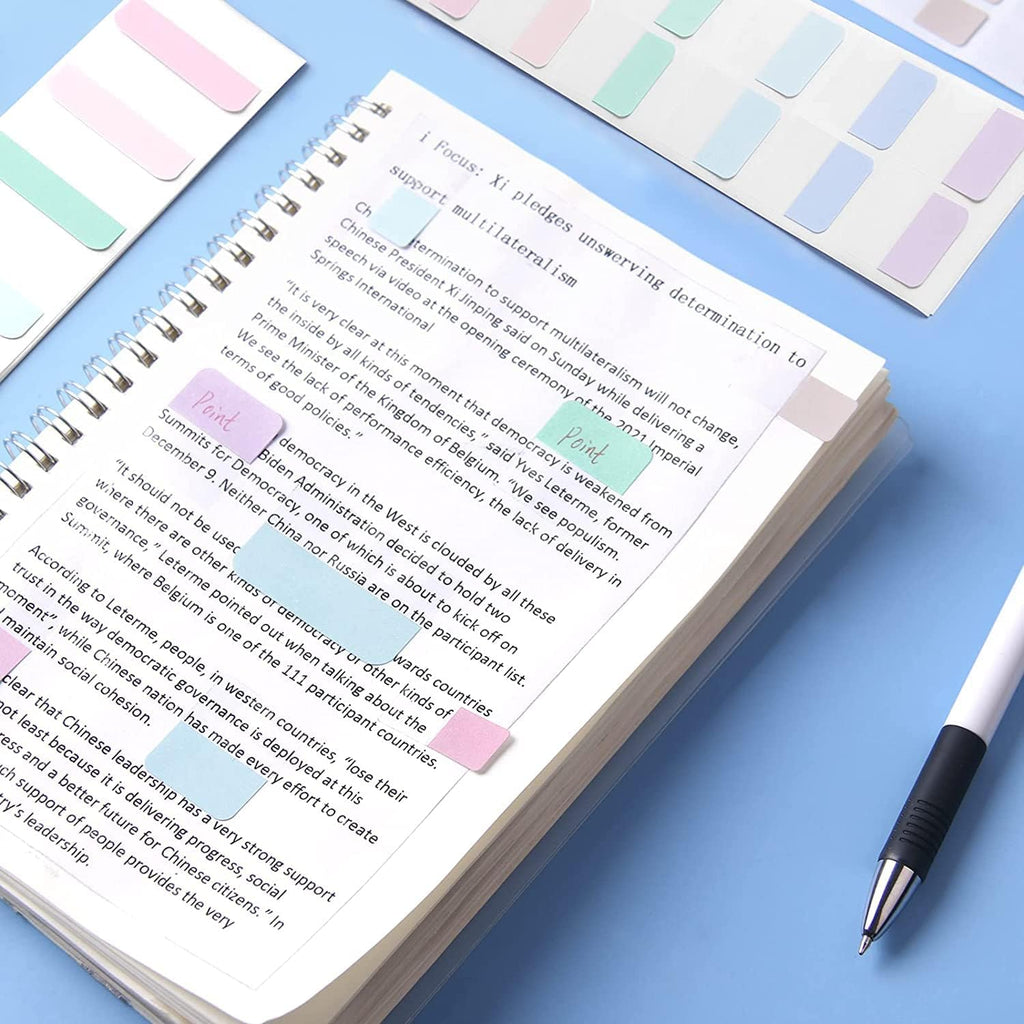 i Focus: Xi pledges unswerving determination to
support multilateralism
Ch
termination to support multilateralism will not change,
Chinese President Xi Jinping said on Sunday while delivering a
speech via video at the opening ceremony of the 2021 Imperial
Springs International
"It is very clear at this moment that democracy is weakened from
the inside by all kinds of tendencies," said Yves Leterme, former
Prime Minister of the Kingdom of Belgium. "We see populism.
We see the lack of performance efficiency, the lack of delivery in
terms of good policies."
Point
Point
democracy in the West is clouded by all these
Summits Biden Administration decided to hold two
Summits for Democracy, one of which is about to kick off on
December 9. Neither China nor Russia are on the participant list.
"It should not be used wards countries
where there are other kinds of democracy or other kinds of
governance," Leterme pointed out when talking about the
Summit, where Belgium is one of the 111 participant countries.
According to Leterme, people, in western countries, "lose their
trust in the way democratic governance is deployed at this
moment", while Chinese nation has made every effort to create
maintain social cohesion.
clear that Chinese leadership has a very strong support
not least because it is delivering progress, social
ress and a better future for Chinese citizens." In
ch support of people provides the very
try's leadership.